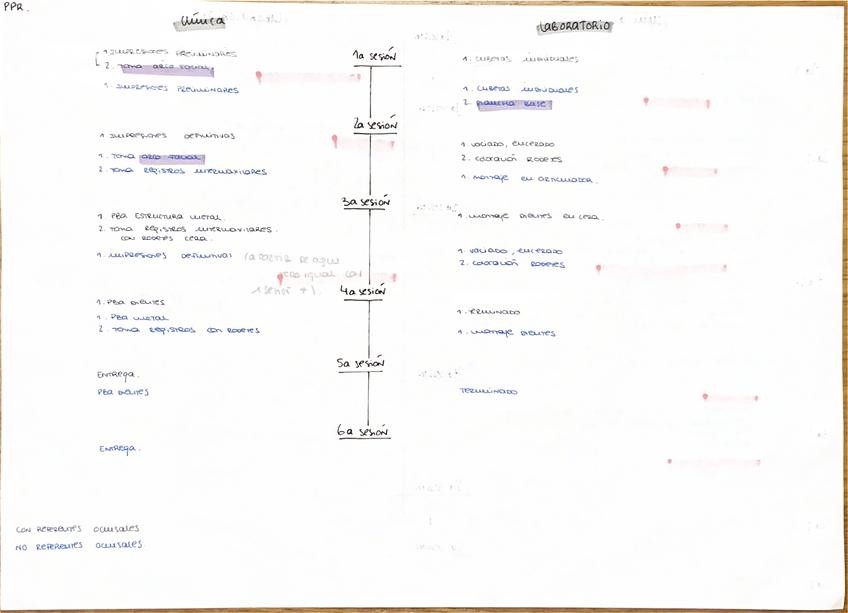 PPR.
CLÍNICA
LABORATORIO
1a SESIÓN
1. IMPRESIONES PRELIMINARES
2. TOMA ARCO FACIAL
1. IMPRESIONES PRELIMINARES
1. CUBETAS INDIVIDUALES
1. CUBETAS INDIVIDUALES
2. PLANCHA BASE
2a SESIÓN
1. IMPRESIONES DEFINITIVAS
1. TOMA ARCO FACIAL
2. TOMA REGISTROS INTERMAXILARES
1. VACIADO, ENCERADO
2. COLOCACIÓN RODETES
1. MONTAJE EN ARTICULADOR.
3a SESIÓN
1. PBA ESTRUCTURA METAL.
2. TOMA REGISTROS INTERMAXILARES.
CON RODETES CERA.
1. IMPRESIONES DEFINITIVAS (A PARTIR DE AQUÍ
TODO IGUAL CON
1 SESIÓN +).
1. MONTAJE DIENTES EN CERA.
1. VACIADO, ENCERADO
2. COLOCACIÓN RODETES
4a SESIÓN
1. PBA DIENTES
1. PBA METAL
2. TOMA REGISTROS CON RODETES
1. TERMINADO
1. MONTAJE DIENTES
5a SESIÓN
ENTREGA.
PBA DIENTES
TERMINADO
6a SESIÓN
ENTREGA.
CON REFERENTES OCLUSALES
NO REFERENTES OCLUSALES